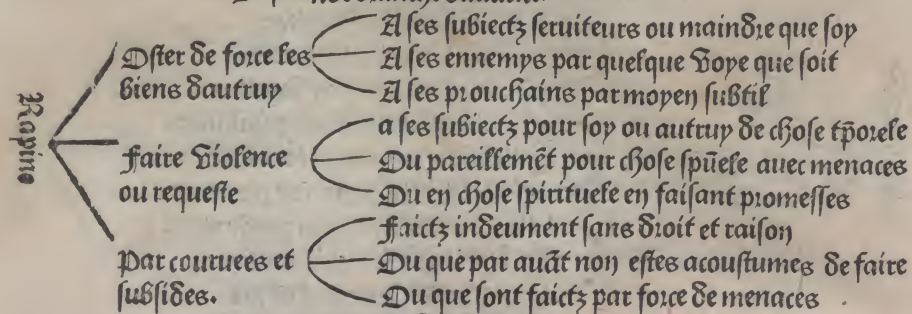 Rapine
Oster de force les
biens dautruy
A ses subiectz seruiteurs ou maindre que soy
A ses ennemys par quelque voye que soit
A ses prouchains par moyen subtil
faire violence
ou requeste
a ses subiectz pour soy ou autruy de chose tp̄orele
Ou pareillemēt pour chose sp̄uele auec menaces
Ou en chose spirituele en faisant promesses
Par couruees et
subsides.
faictz indeument sans droit et raison
Ou que par auāt non estes acoustumes de faire
Ou que sont faictz par force de menaces .